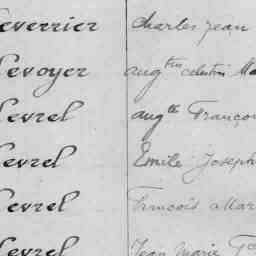 everrier Charles Jean
evoyer Aug^tin Celestin Ma
evrel Aug^te Françoi
evrel Emile Joseph
evrel François Mar
evrel Jean Marie